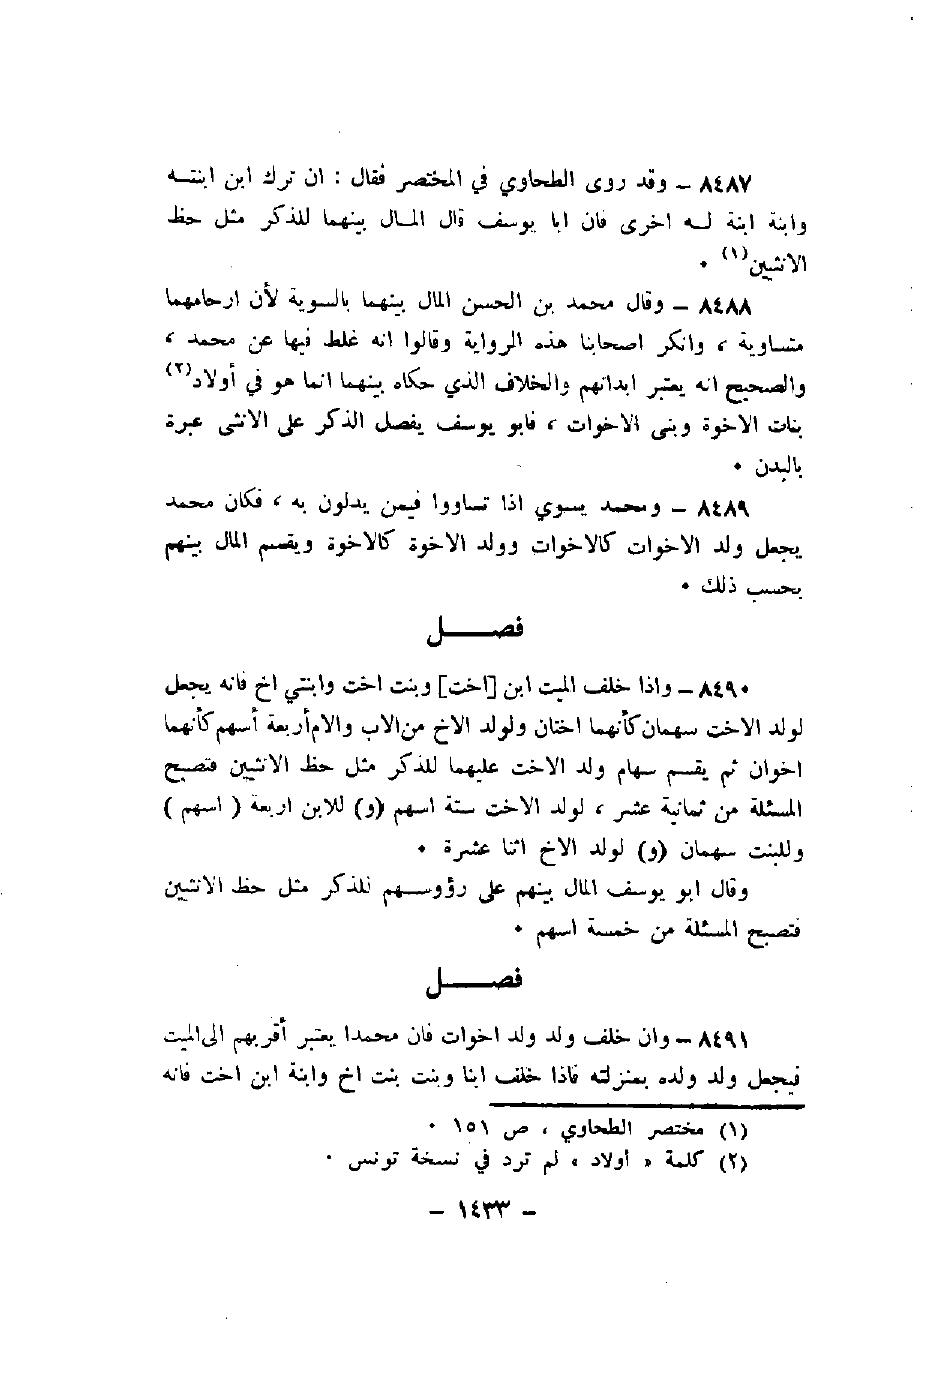 ٨٤٨٧ – وقد روى الطحاوي في المختصر فقال : ان ترك ابن ابنتـــه
وابنة ابنة لــه اخرى فان ابا يوسف قال المــال بينهما للذكر مثل حظ
الانثيين(١) ٠
٨٤٨٨ – وقال محمد بن الحسن المال بينهما بالسوية لأن ارحامهما
متساوية ، وانكر اصحابنا هذه الرواية وقالوا انه غلط فيها عن محمد ،
والصحيح انه يعتبر ابدانهم والخلاف الذي حكاه بينهما انما هو في أولاد(٢)
بنات الاخوة وبنى الاخوات ، فابو يوسف يفصل الذكر على الانثى عبرة
بالبدن ٠
٨٤٨٩ – ومحمد يسوي اذا تساووا فيمن يدلون به ، فكان محمد
يجعل ولد الاخوات كالاخوات وولد الاخوة كالاخوة ويقسم المال بينهم
بحسب ذلك ٠
فصـــــل
٨٤٩٠ – واذا خلف الميت ابن [اخت] وبنت اخت وابنتي اخ فانه يجعل
لولد الاخت سهمان كأنهما اختان ولولد الاخ من الاب والام أربعة أسهم كأنهما
اخوان ثم يقسم سهام ولد الاخت عليهما للذكر مثل حظ الانثيين فتصح
المسئلة من ثمانية عشر ، لولد الاخت ستة اسهم (و) للابن اربعة ( اسهم )
وللبنت سهمان (و) لولد الاخ اثنا عشرة ٠
وقال ابو يوسف المال بينهم على رؤوســهم للذكر مثل حظ الانثيين
فتصح المسئلة من خمسة اسهم ٠
فصـــــل
٨٤٩١ – وان خلف ولد ولد اخوات فان محمدا يعتبر أقربهم الى الميت
فيجعل ولد ولده بمنزلته فاذا خلف ابنا وبنت بنت اخ وابنة ابن اخت فانه
(١) مختصر الطحاوي ، ص ١٥١ ٠
(٢) كلمة « أولاد » لم ترد في نسخة تونس ٠
– ١٤٣٣ –